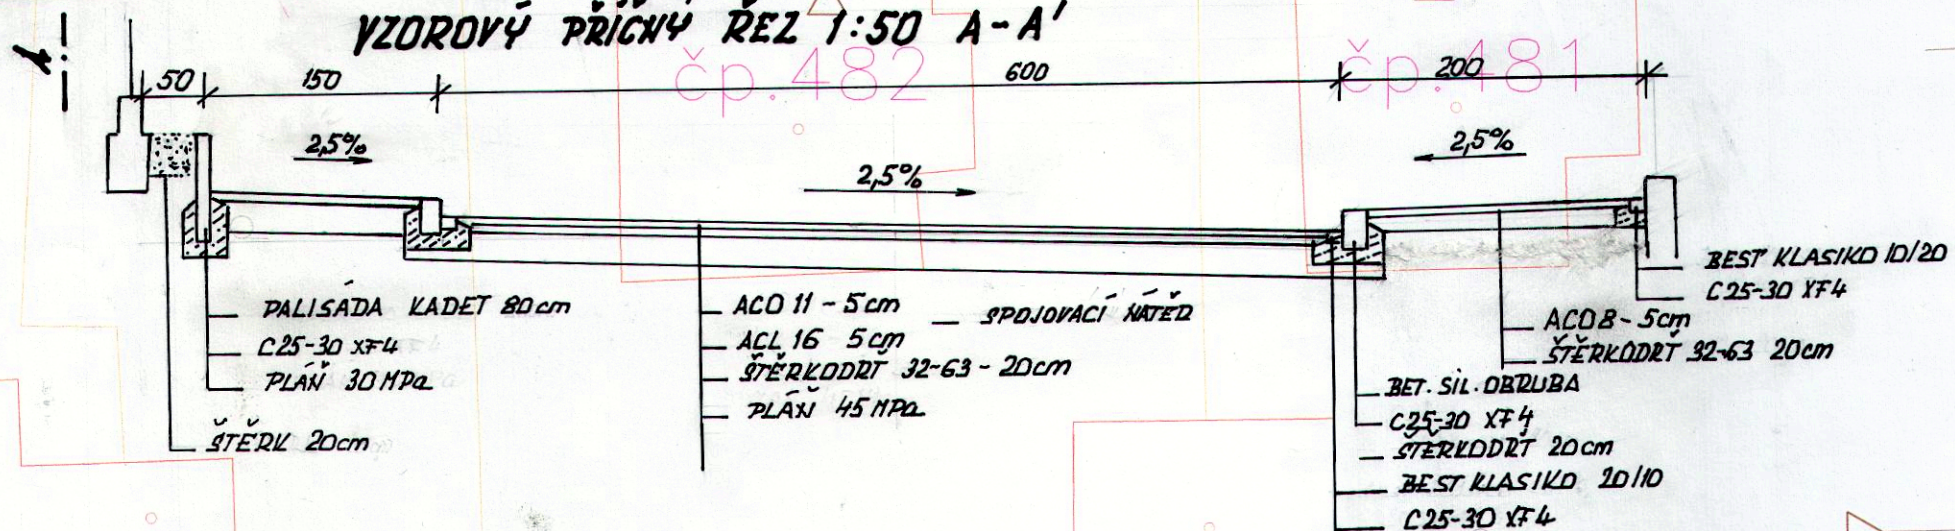 VZOROVÝ PŘÍČNÝ ŘEZ 1:50 A-A'
čp.482
čp.481
50
150
600
200
2,5%
2,5%
2,5%
PALISÁDA KADET 80cm
C25-30 XF4
PLÁŇ 30 MPa
ŠTĚRK 20cm
ACO 11 - 5cm
SPOJOVACÍ NÁTĚR
ACL 16 5cm
ŠTĚRKODRŤ 32-63 - 20cm
PLÁŇ 45 MPa
BEST KLASIKO 10/20
C25-30 XF4
ACO8 - 5cm
ŠTĚRKODRŤ 32-63 20cm
BET. SIL. OBRUBA
C25-30 XF4
ŠTĚRKODRŤ 20cm
BEST KLASIKO 20/10
C25-30 XF4